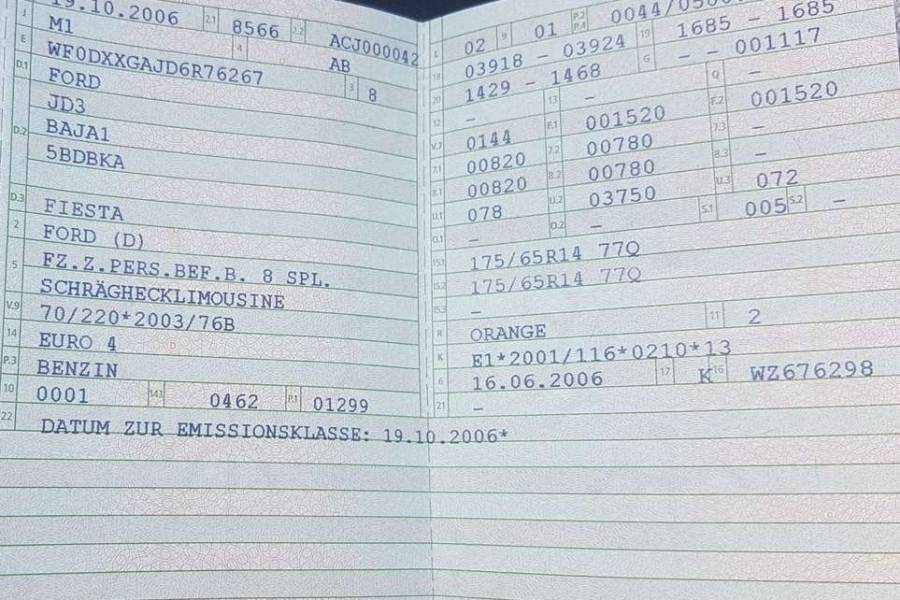 19.10.2006 2.1 8566 2.2 ACJ000042
J M1 4 AB
E WF0DXXGAJD6R76267 3 8
D.1 FORD
D.2 JD3
BAJA1
5BDBKA
D.3 FIESTA
2 FORD (D)
5 FZ.Z.PERS.BEF.B. 8 SPL.
SCHRÄGHECKLIMOUSINE
V.9 70/220*2003/76B
14 EURO 4
P.3 BENZIN
10 0001 14.1 0462 P.1 01299
22 DATUM ZUR EMISSIONSKLASSE: 19.10.2006*
L 02 9 01 P.2 P.4 0044/
18 03918 - 03924 19 1685 - 1685
20 1429 - 1468 G - - 001117
12 - 13 - Q -
V.7 0144 F.1 001520 F.2 001520
7.1 00820 7.2 00780 7.3 -
8.1 00820 8.2 00780 8.3 -
U.1 078 U.2 03750 U.3 072
O.1 - O.2 - S.1 005 S.2 -
15.1 175/65R14 77Q
15.2 175/65R14 77Q
15.3 -
R ORANGE 11 2
K E1*2001/116*0210*13
6 16.06.2006 17 K 16 WZ676298
21 -